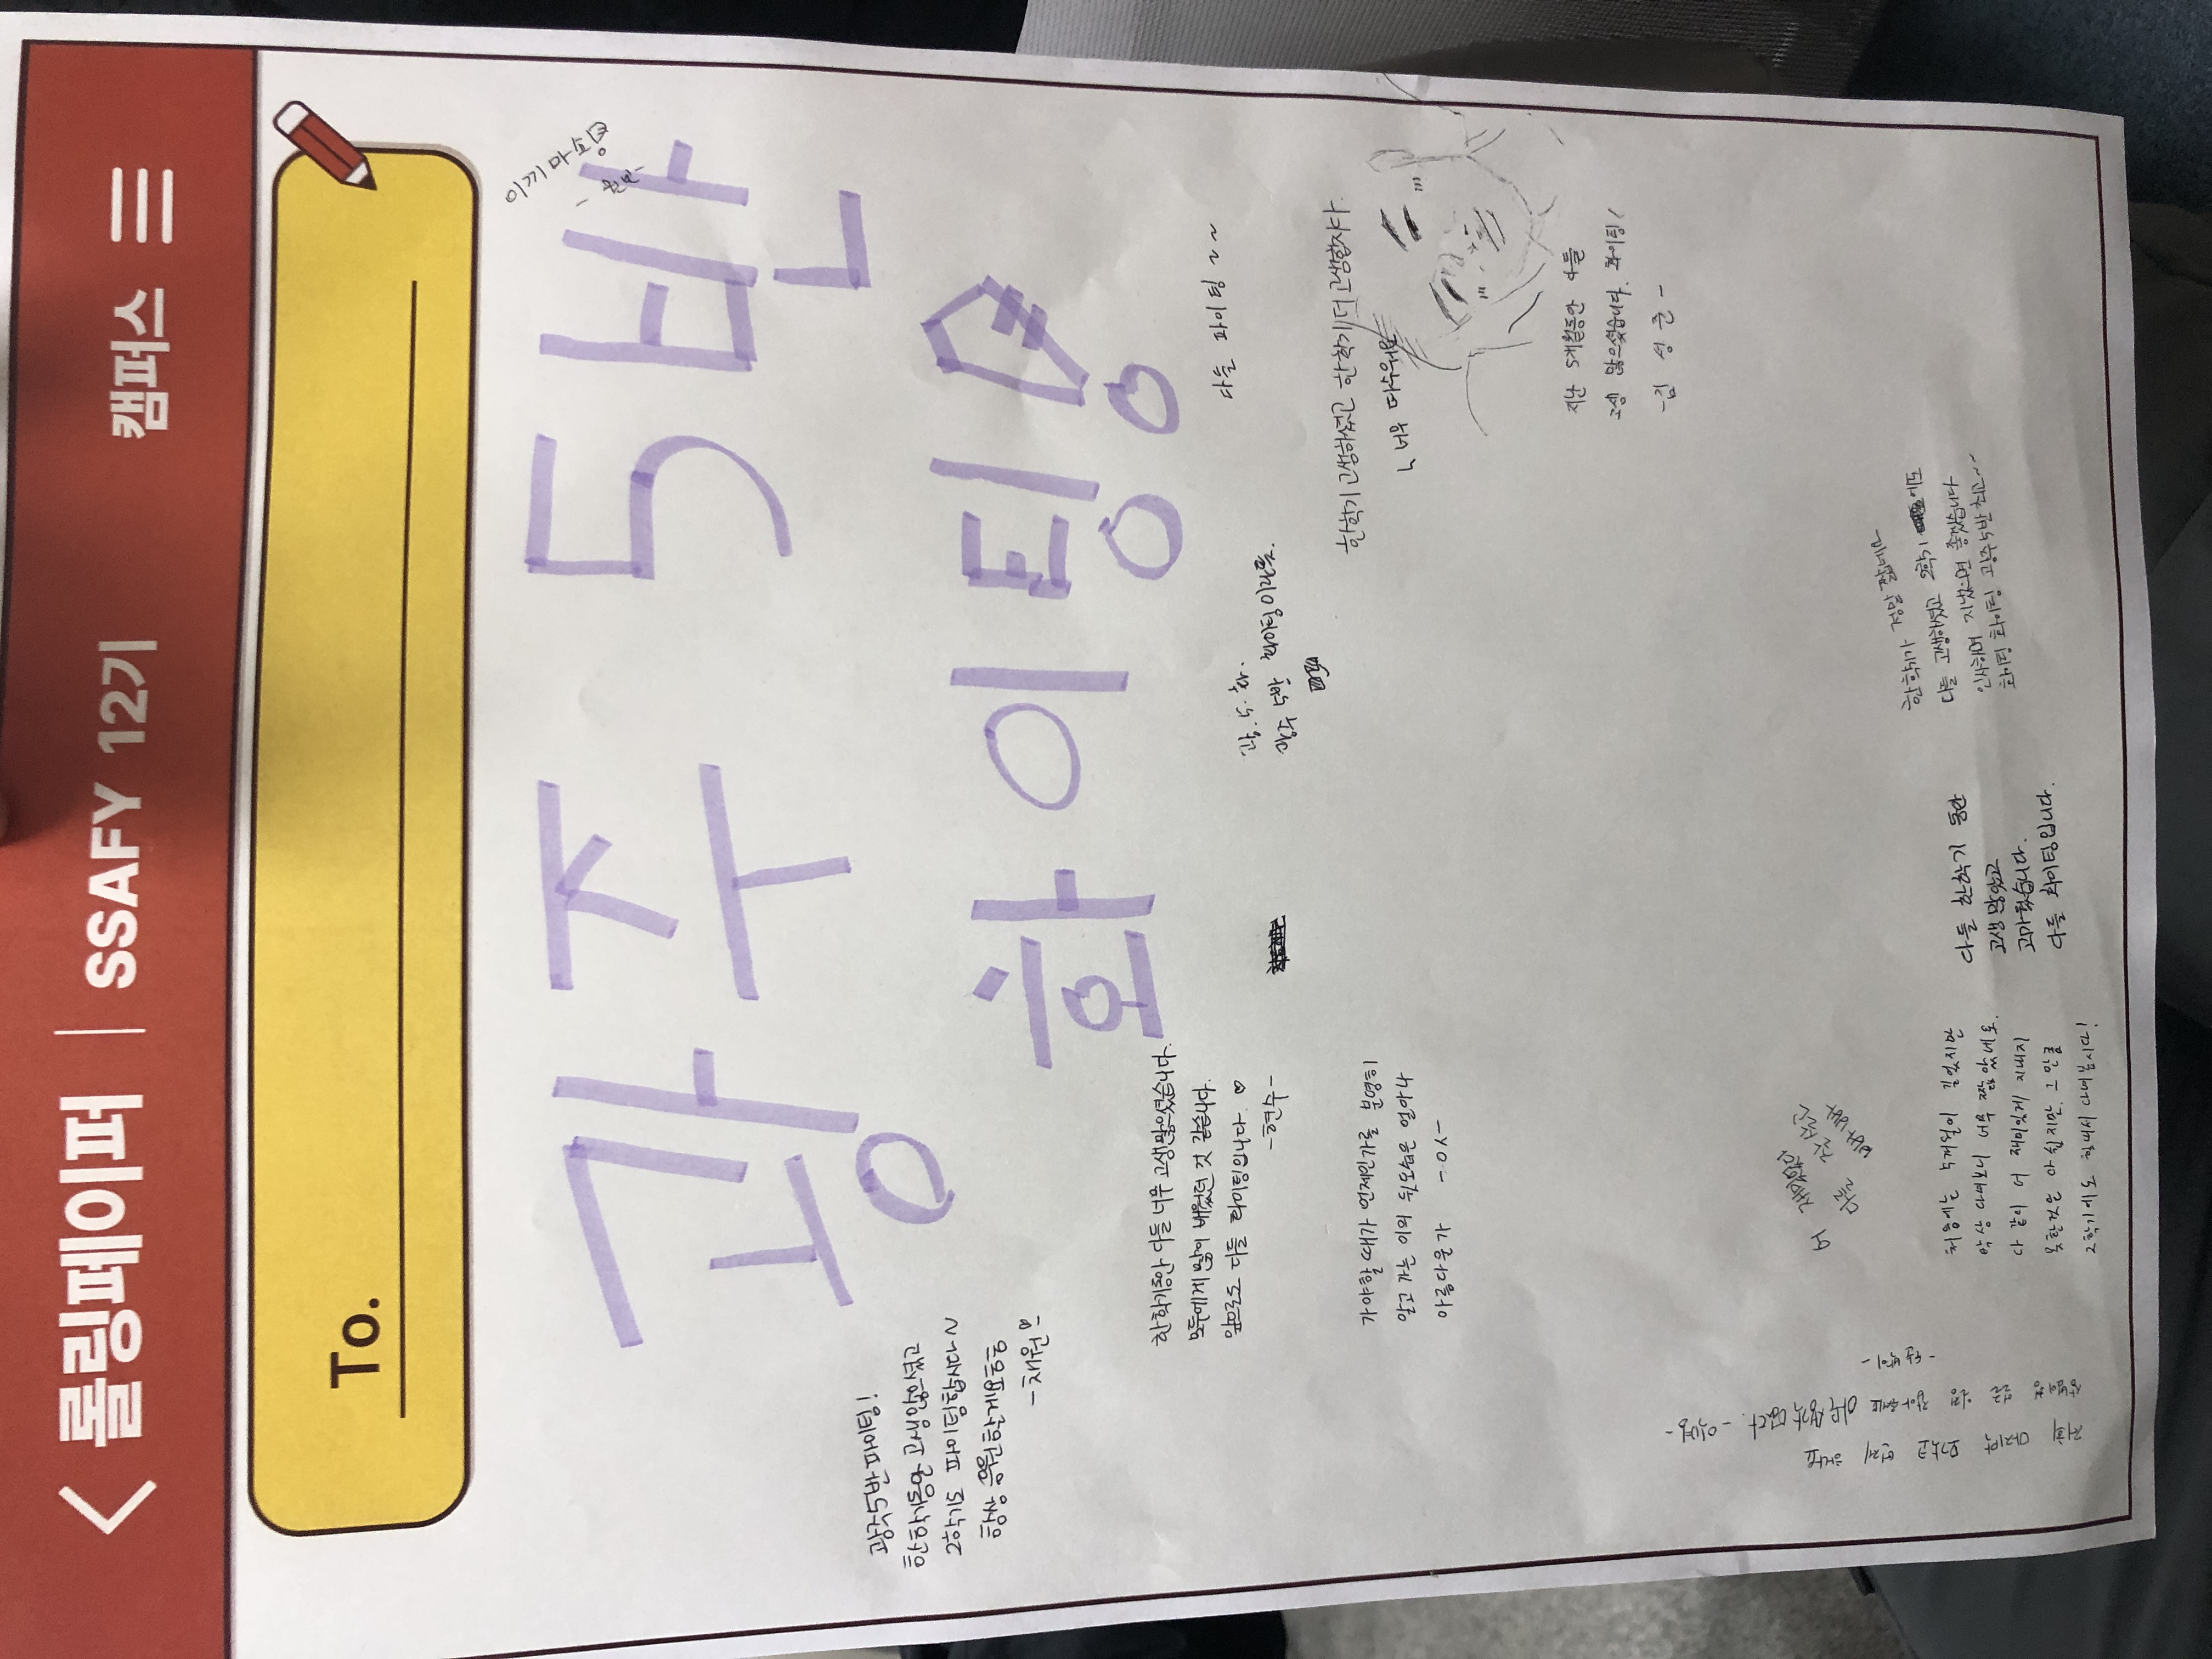 롤링페이퍼 | SSAFY 12기 캠퍼스
To.
이끼 마송
광주 5반
화이팅!
광주5반 파이팅!
한학기동안 고생많으셨고
2학기도 파이팅합시다~
항상 응원할게요
-채원
한학기동안 다들 너무 고생많으셨습니다.
모두에게 많이 배웠던 것 같습니다.
앞으로도 다들 화이팅입니다. ♡
-현수-
다들 파이팅 ~~
광.5.화.
광주 5반 화이팅이란뜻.
한학기 고생하셨고 한학기 더 고생합시다.
너무 따수워요
가야할 때가 언제인가를 분명히
알고 가는 이의 뒷모습은 얼마나
아름다운가 -ㅇㅅ-
지난 5개월동안 다들
고생 많으셨습니다. 화이팅!
-김성준-
저희 마지막 모각코 언제 하나요
상범이형 얼른 일정 잡아주세요
아무생각 없다. -익명-
어 재밌었다
다들 잘살고
빠빠
처음에는 5개월이 길었지만
막상 다녀보니 너무 짧았네요.
다 같이 더 재미있게 지내지
못한것은 아쉽지만, 그만큼
2학기에도 힘내서 다녀봅시다!
다들 한학기 동안
고생 많았고
고마웠습니다.
다들 화이팅입니다.
한학기가 정말 짧네요
다들 고생하셨고 2학기에도
인사하며 지냈으면 좋겠습니다
화이팅 화이팅 광주5반 최고~~